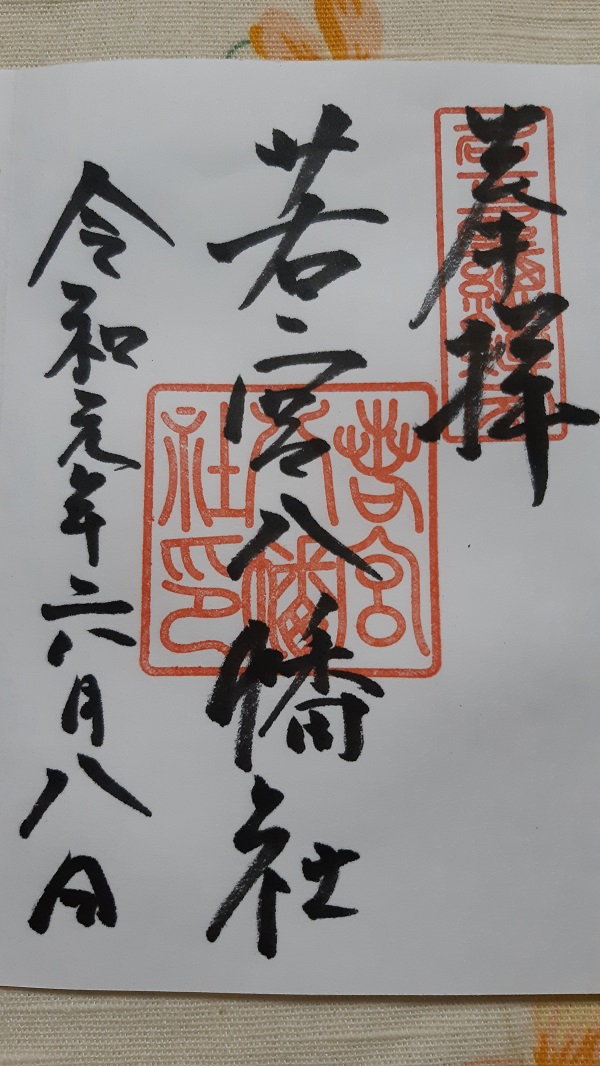 奉拝
若宮八幡社
若宮八幡社印
令和元年六月八日